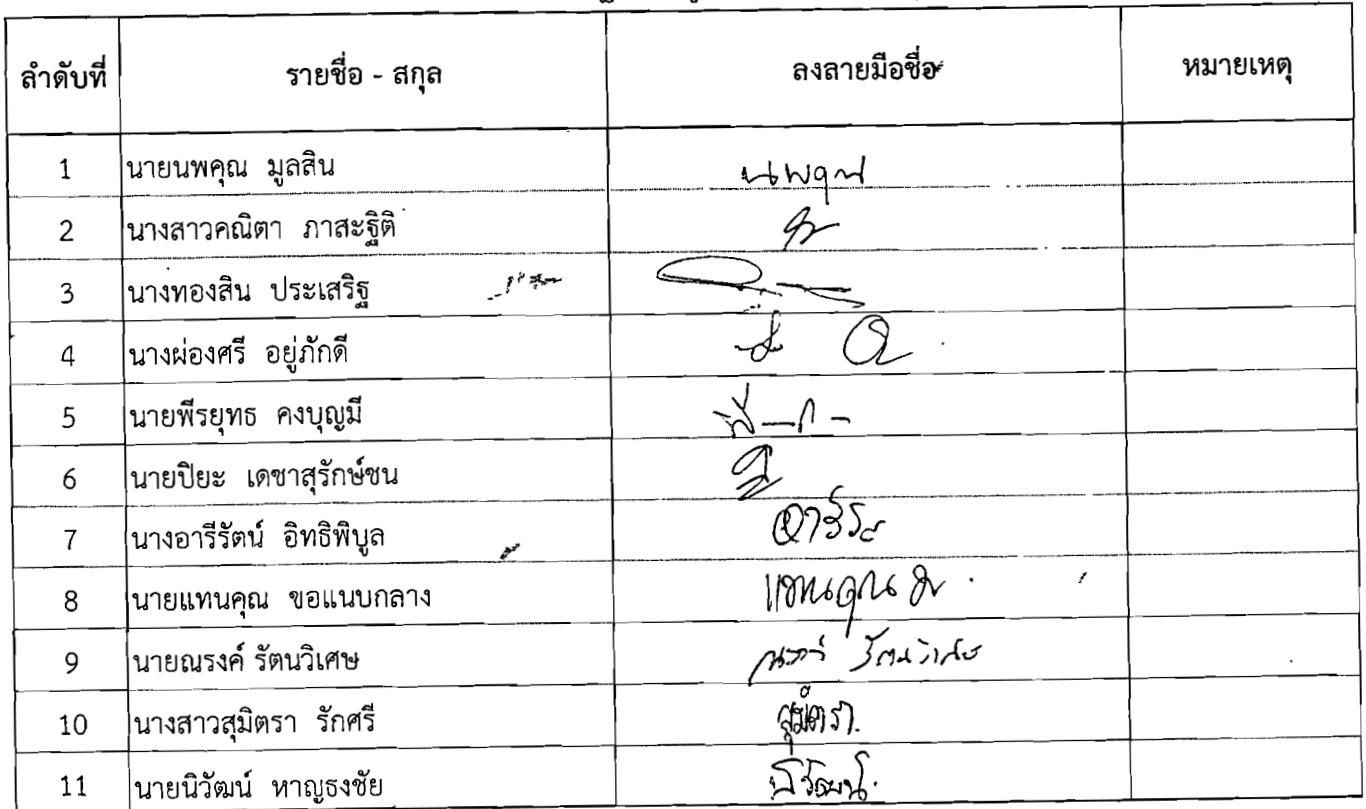 ลำดับที่ รายชื่อ - สกุล ลงลายมือชื่อ หมายเหตุ
1 นายนพคุณ มูลสิน นพคุณ
2 นางสาวคณิตา ภาสะฐิติ
3 นางทองสิน ประเสริฐ
4 นางผ่องศรี อยู่ภักดี
5 นายพีรยุทธ คงบุญมี
6 นายปิยะ เดชาสุรักษ์ชน
7 นางอารีรัตน์ อิทธิพิบูล
8 นายแทนคุณ ขอแนบกลาง แทนคุณ
9 นายณรงค์ รัตนวิเศษ ณรงค์ รัตนวิเศษ
10 นางสาวสุมิตรา รักศรี สุมิตรา.
11 นายนิวัฒน์ หาญธงชัย นิวัฒน์.